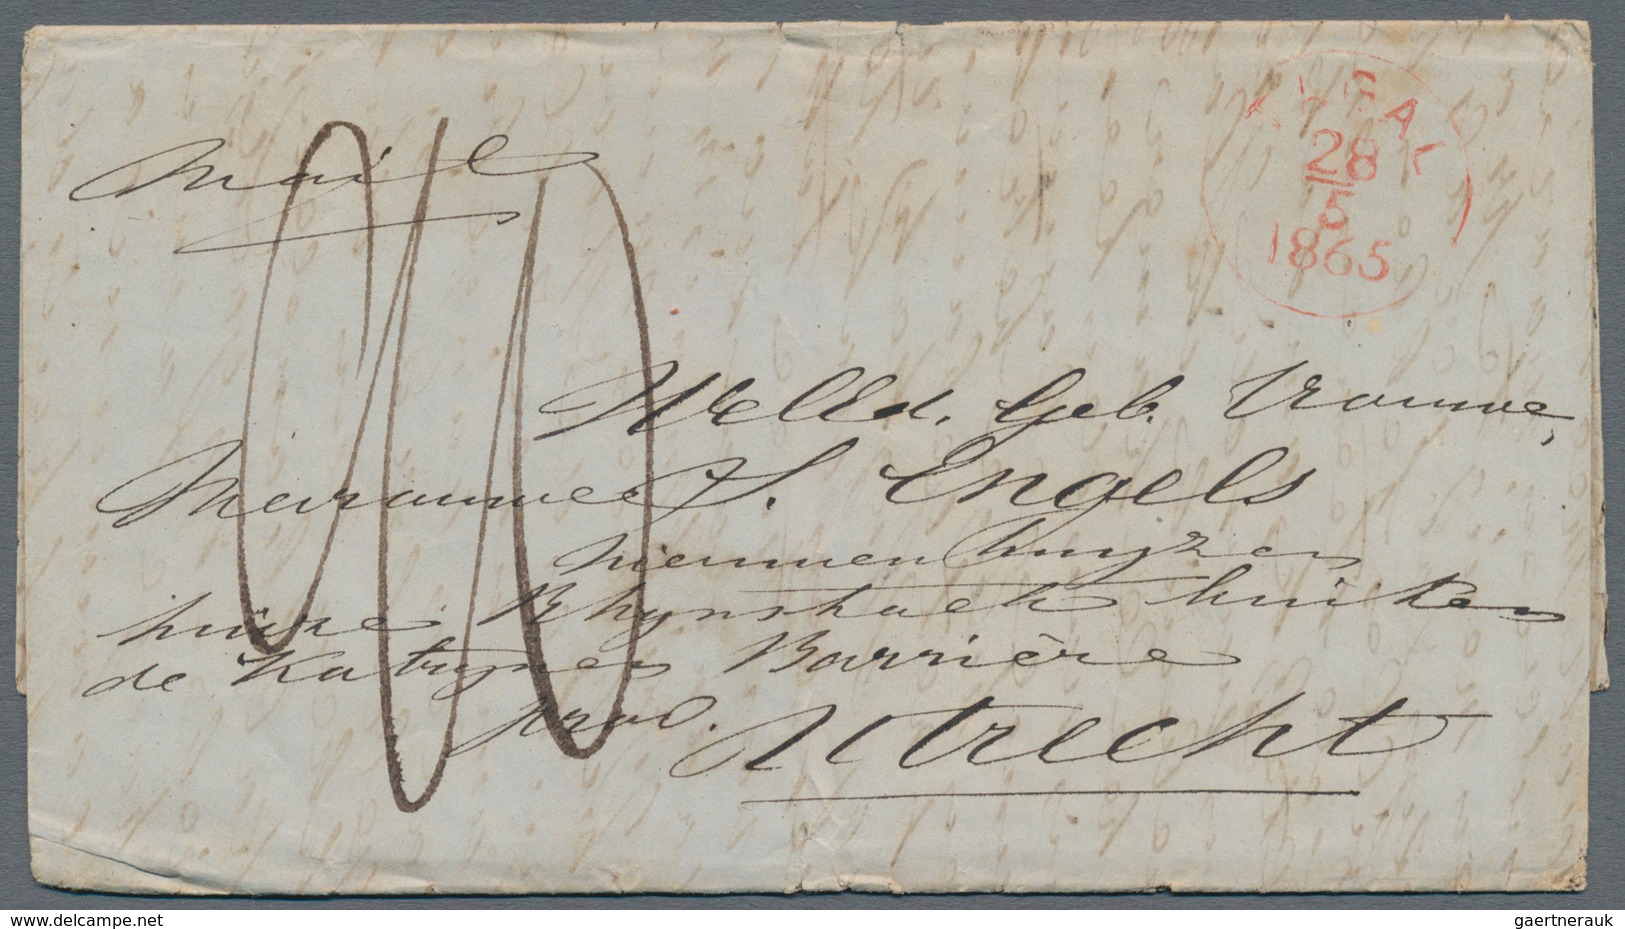 Mail
28
5
1865
WelEd. Geb. Vrouwe,
Mevrouwe S. Engels
nieuwen huyzen
huize Rhynshoek buiten
de Katrynen Barrière
Utrecht
www.delcampe.net
gaertnerauk